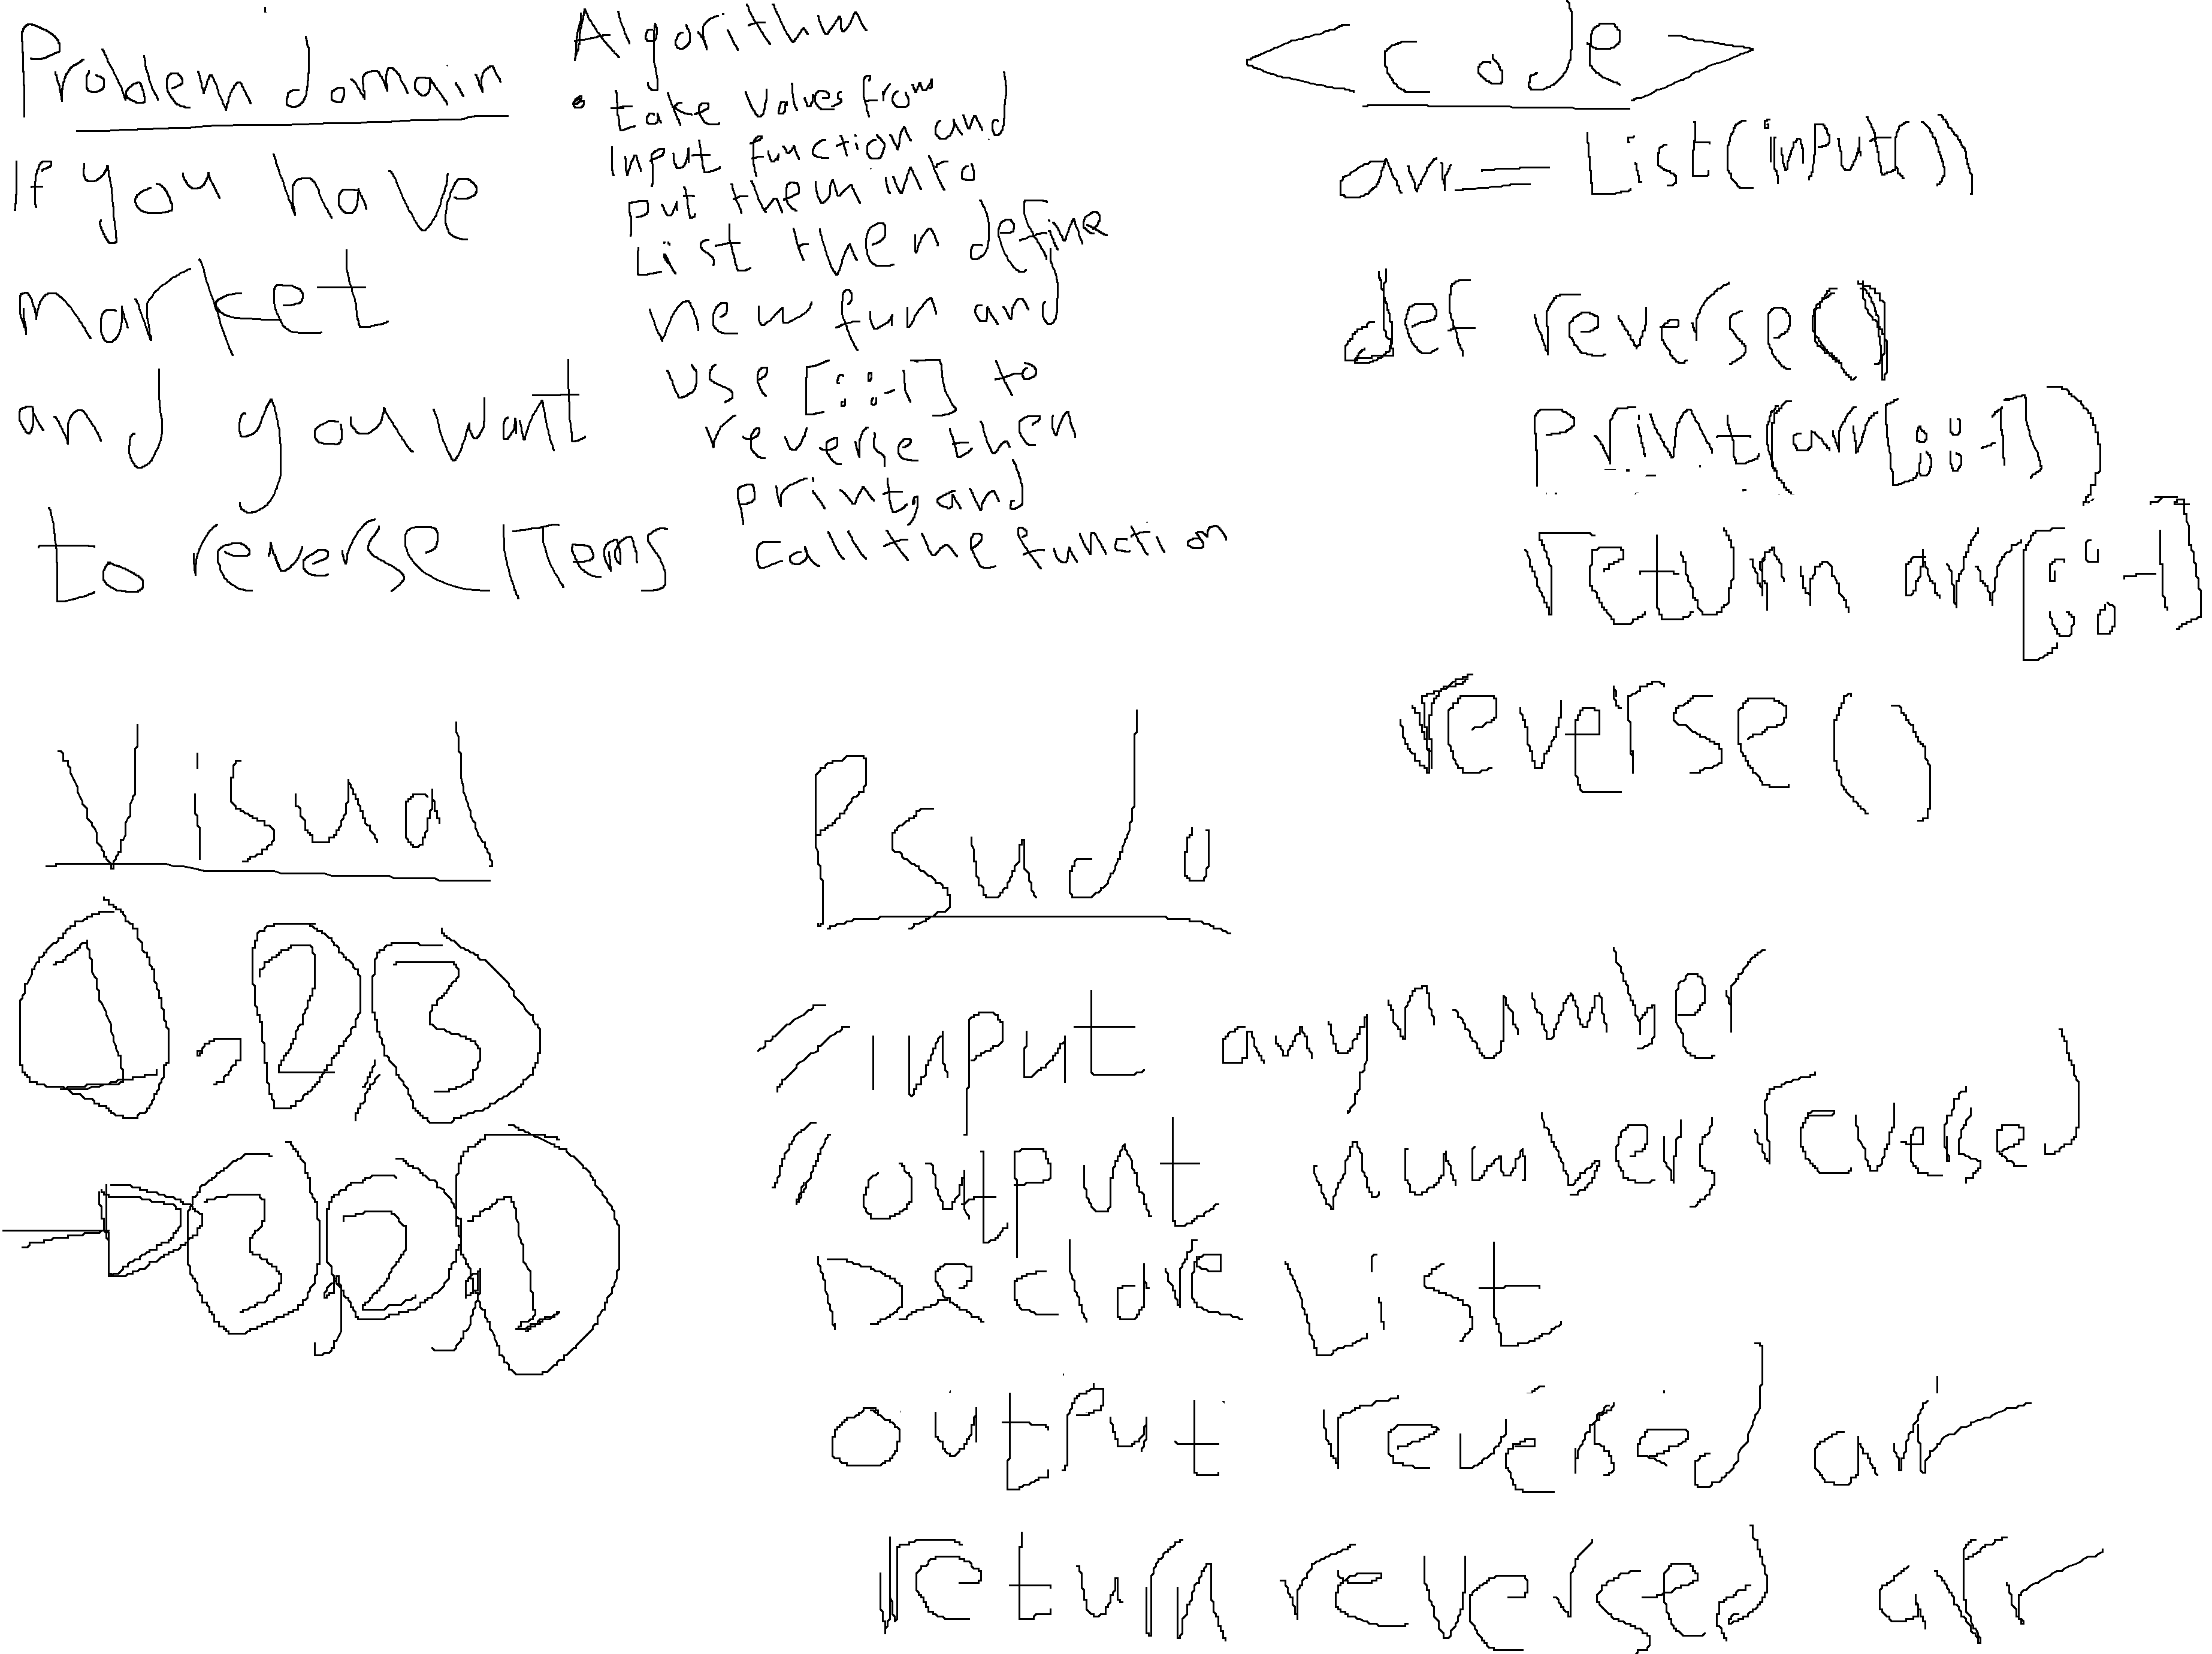 Problem domain
If you have
market
and you want
to reverse ITems
Algorithm
• take Values from
Input function and
put them into
List then define
new fun and
use [::-1] to
reverse then
print, and
call the function
<code>
arr = List(input())
def reverse()
print(arr[::-1])
return arr[::-1]
reverse()
Visual
1, 2, 3
→ 3, 2, 1
Psudo
// input any number
// output numbers reversed
Declare List
output reversed arr
return reversed arr